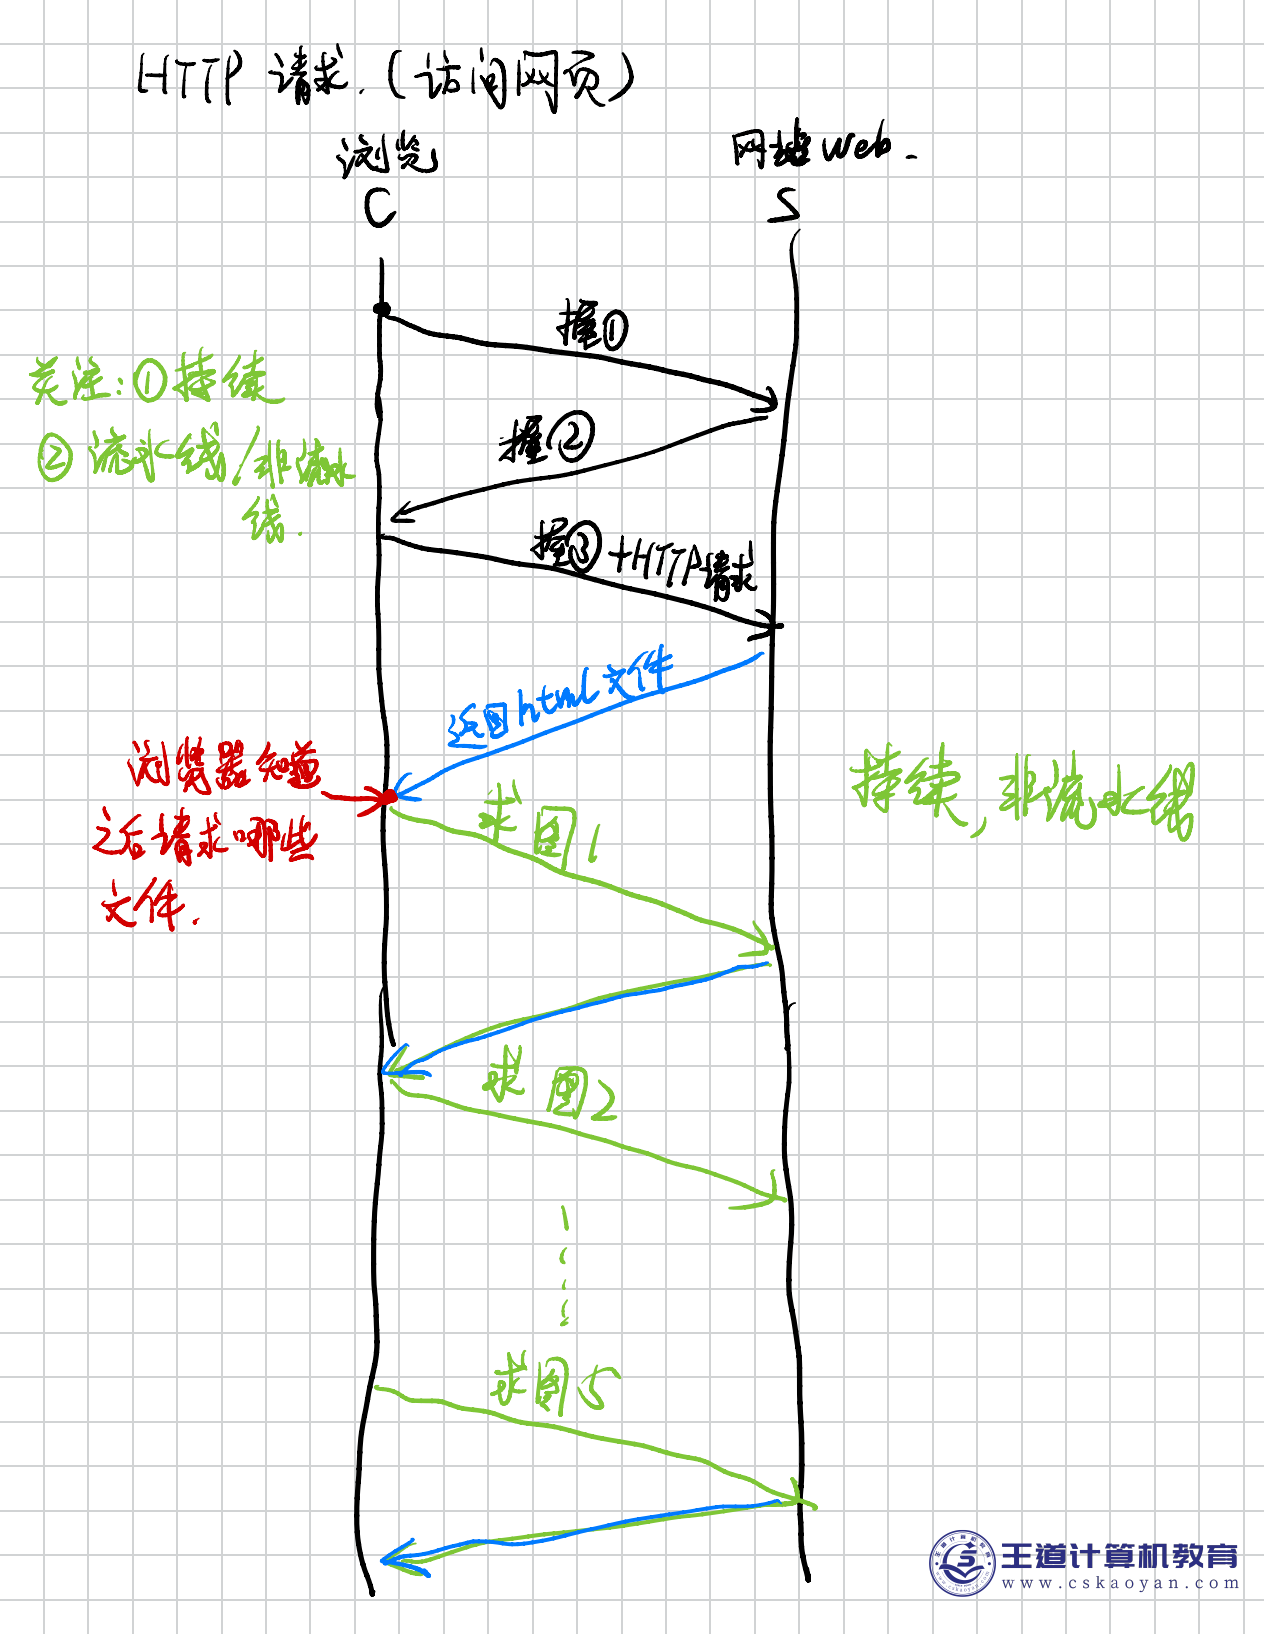 HTTP 请求.(访问网页)
浏览
网址Web.
C
S
握①
关注:①持续
握②
②流水线/非流水
线.
握③+HTTP请求
返回html文件
浏览器知道
之后请求哪些
文件.
求图1
持续,非流水线
求图2
求图5
王道计算机教育
www.cskaoyan.com